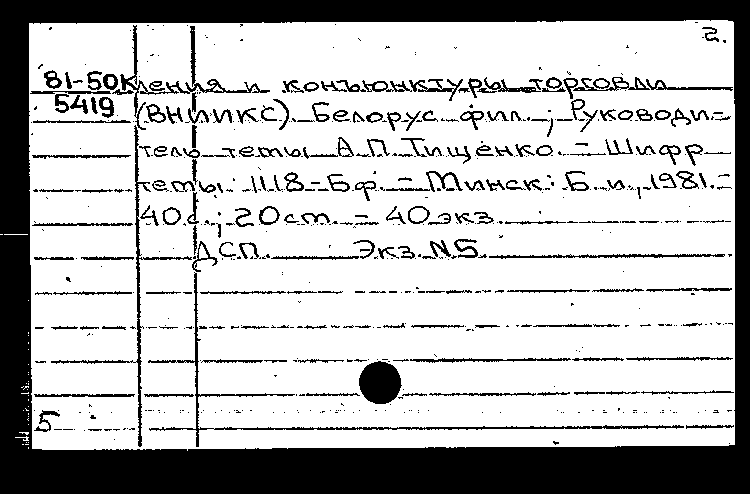 2.
81-50к ления и конъюнктуры торговли
5419 (ВНИИКС). Белорус. фил.; Руководи-
тель темы А.П. Тищенко. – Шифр
темы: 1118-Бф. – Минск: Б.и., 1981. –
40с.; 20см. – 40экз.
ДСП. Экз. N5.
5